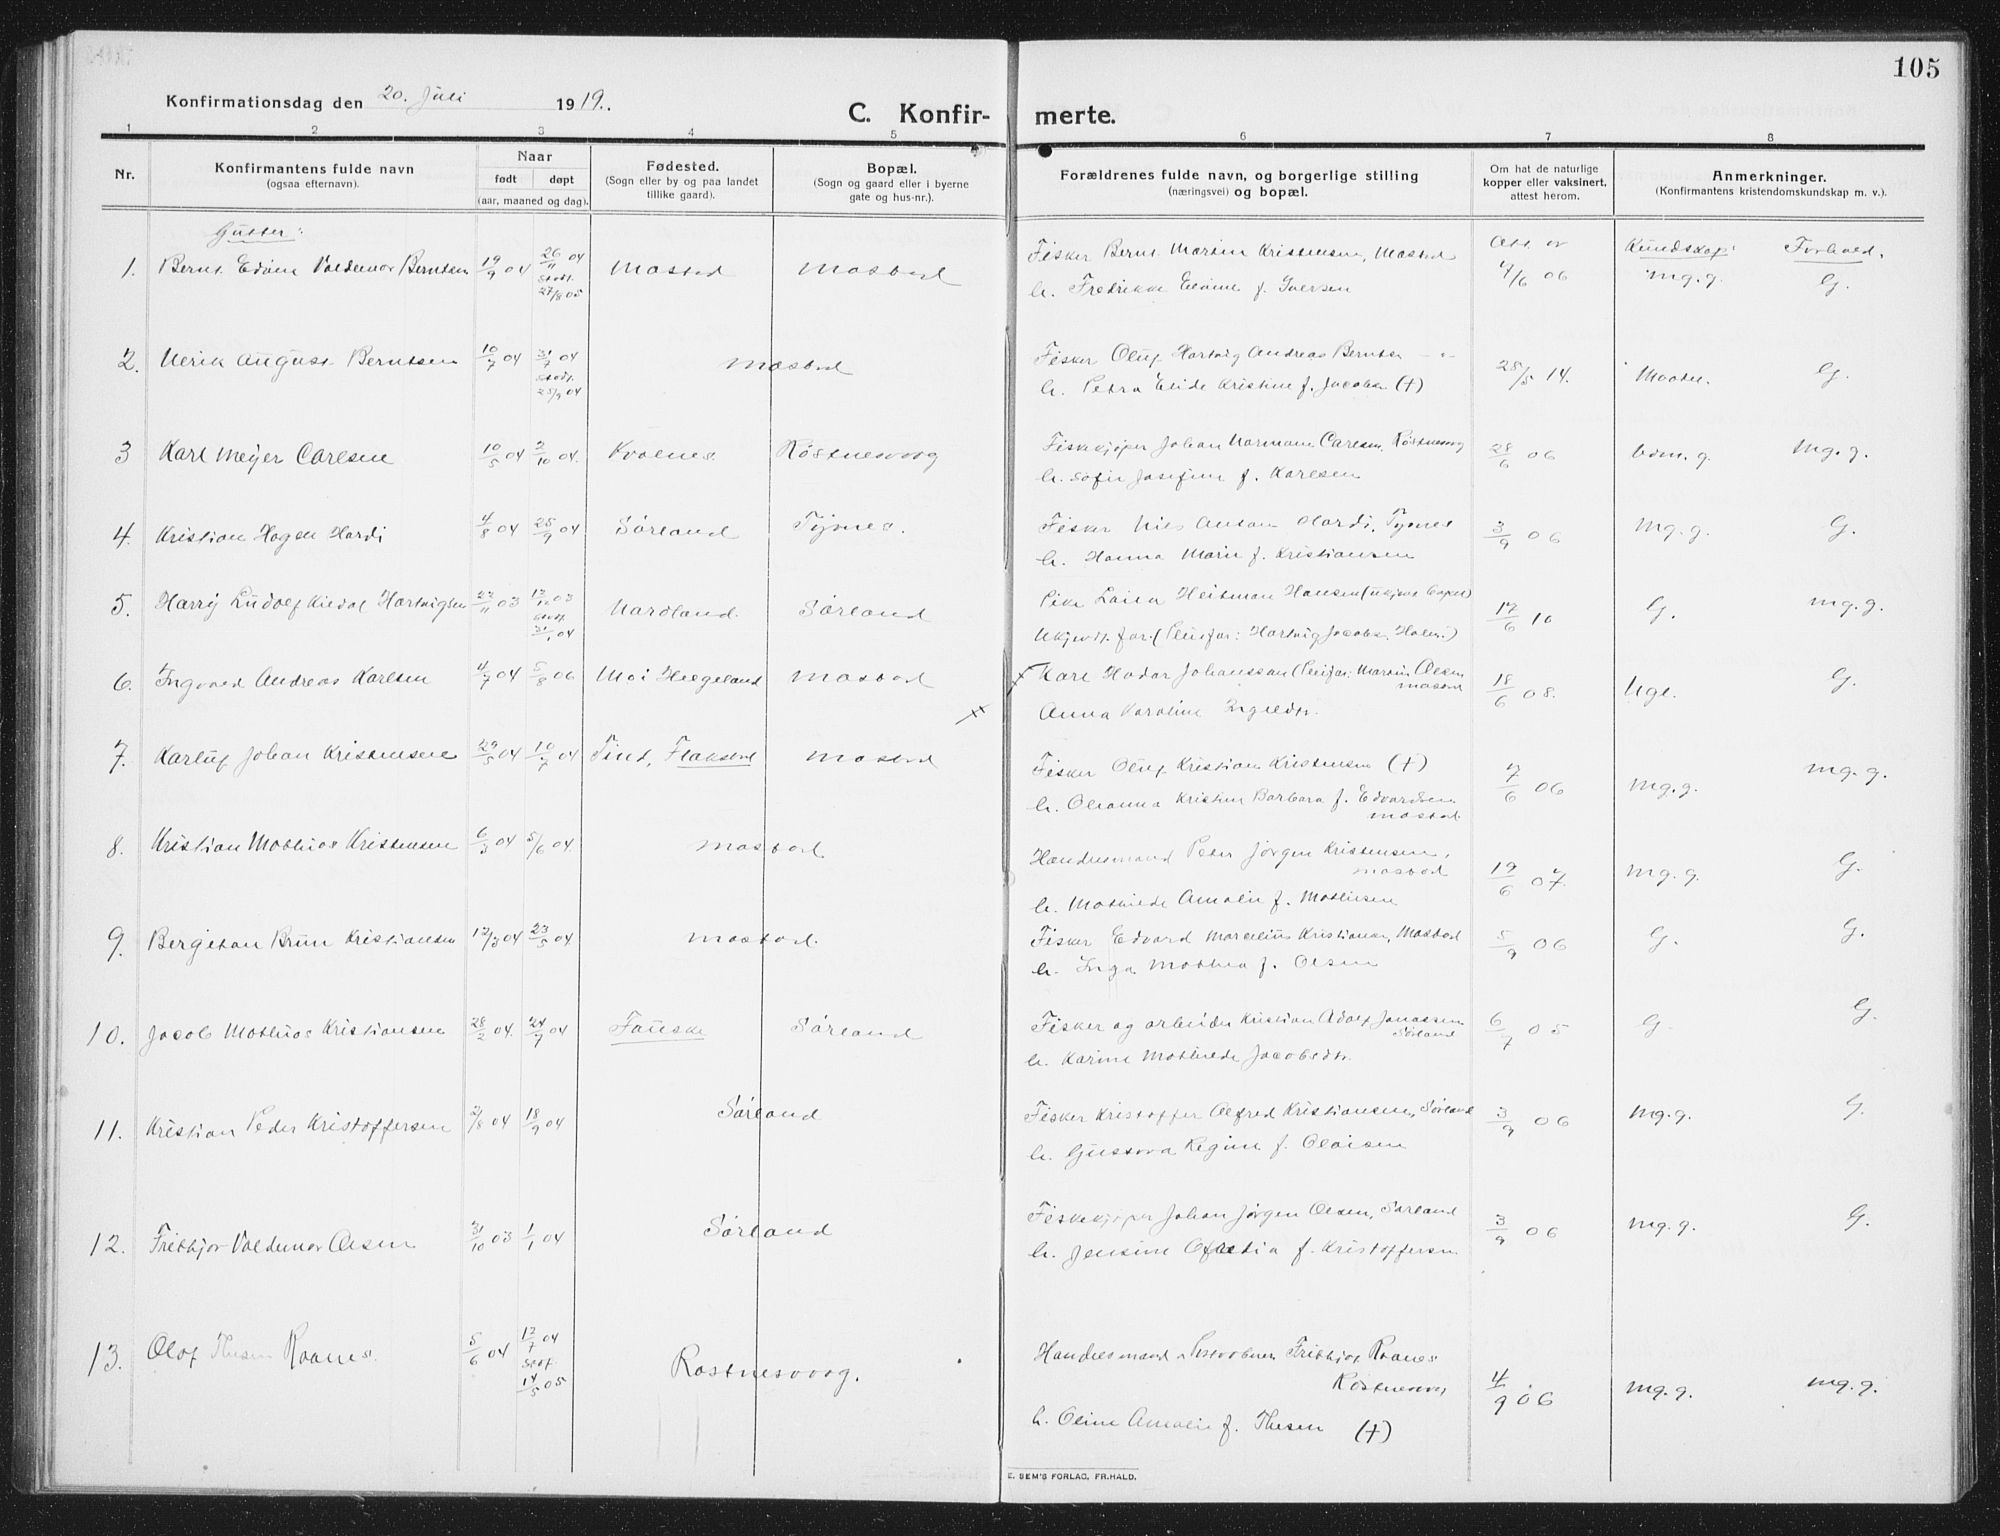 105
Konfirmationsdag den 20. Juli 1919.
C. Konfir- merte.
1 2 3 4 5 6 7 8
Nr. Konfirmantens fulde navn (ogsaa efternavn). Naar født døpt (aar, maaned og dag). Fødested. (Sogn eller by og paa landet tillike gaard). Bopæl. (Sogn og gaard eller i byerne gate og hus-nr.). Forældrenes fulde navn, og borgerlige stilling (næringsvei) og bopæl. Om hat de naturlige kopper eller vaksinert, attest herom. Anmerkninger. (Konfirmantens kristendomskundskap m. v.).
Gutter:
Att. av Kundskap: Forhold.
1. Bernt Edvin Valdemar Berntsen 19/9 04 26/11 04 stadf. 27/8 05 Mostad Mostad Fisker Bernt Martin Kristensen, Mostad 7/6 06 mg. g. G.
h. Fredrikke Elvine f. Iversen
2. Ulrik August Berntsen 10/7 04 31/7 04 stadf. 25/9 04 Mostad Fisker Oluf Hartvig Andreas Berntsen — " — 28/5 14. Maatel. G.
h. Petra Elide Kristine f. Jacobsen (+)
3 Karl Meyer Carlsen 10/5 04 2/10 04. Kvalnes Røstnesvaag Fiskekjøper Johan Normann Carlsen, Røstnesvaag 28/6 06 Udm. g. Mg. g.
h. Sofie Josefine f. Karlsen
4. Kristian Hagen Hardi 4/8 04 25/9 04 Sørland Tyvnes. Fisker Nils Antan Hardi, Tyvnes 3/9 06 Mg. g. G.
h. Hanna Marie f. Kristiansen
5. Harry Ludolf Kildal Hartvigsen 22/11 03 13/12 03 stadf. 31/1 04 Nordland. Sørland Pike Laila Heitman Hansen 17/6 10 G. Mg. g.
Ukjendt far. (Pleiefar: Hartvig Jacobsen Holm.)
6. Ingvald Andreas Karlsen 4/7 04 5/8 06 Mo i Helgeland Mostad Karl Hadar Johanssan (Pleiefar: Martin Olsen Mostad 18/6 08. Ugl. G.
Anna Karoline Ingreldtr.
7. Karluf Johan Kristensen 29/5 04 10/7 04 Tind, Flakstad Mostad Fisker Oluf Kristian Kristensen (+) 7/6 06 Mg. g. Mg. g.
h. Oleanna Kristine Barbara f. Edvardsen Mostad
8. Kristian Mathias Kristensen 6/3 04 5/6 04. Mostad Handelsmand Peter Jørgen Kristensen, Mostad 19/6 07. Mg. g. G.
h. Mathilde Amalie f. Mathisen
9. Bergiton Brun Kristiansen 12/3 04 23/5 04. Mostad. Fisker Edvard Marcelius Kristiansen, Mostad 5/9 06 G. G.
h. Inga Mathea f. Olsen
10. Jacob Mathias Kristiansen 28/2 04. 24/7 04 Fauske Sørland Fisker og arbeider Kristian Adolf Jonassen Sørland 6/7 05 G. G.
h. Karine Mathilde Jacobsdtr.
11. Kristian Peder Kristoffersen 2/8 04 18/9 04 Sørland Fisker Kristoffer Alfred Kristiansen, Sørland 3/9 06 Mg. g. G.
h. Gustava Regine f. Olaisen
12. Frithjov Valdemar Olsen 31/10 03 1/1 04 Sørland Fiskekjøper Johan Jørgen Olsen, Sørland 3/9 06 Mg. g. G.
h. Jensine Ofredia f. Kristoffersen
13. Olaf Thesen Raanes. 5/6 04 17/7 04 stadf. 14/5 05 Røstnesvaag. Handelsmand, Postaabner Fritjof Raanes Røstnesvaag 4/9 06 Mg. g. Mg. g.
h. Oline Amalie f. Thesen (+)
E. SEM'S FORLAG, FR.HALD.